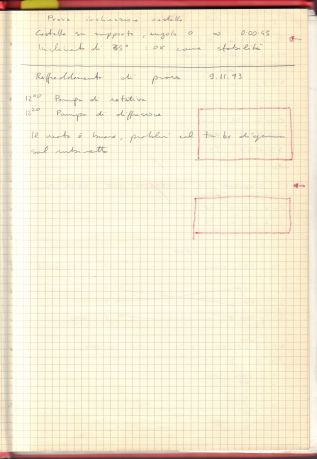 Prova inclinazione castello
Castello su supporto, angolo 0 0:00:43
Inclinato di 35° OK come stabilità
Raffreddamento di prova 9.11.93
12⁰⁰ Pompa di rotativa
12²⁰ Pompa di diffusione
Il vuoto è buono, problemi col
sul rubinetto